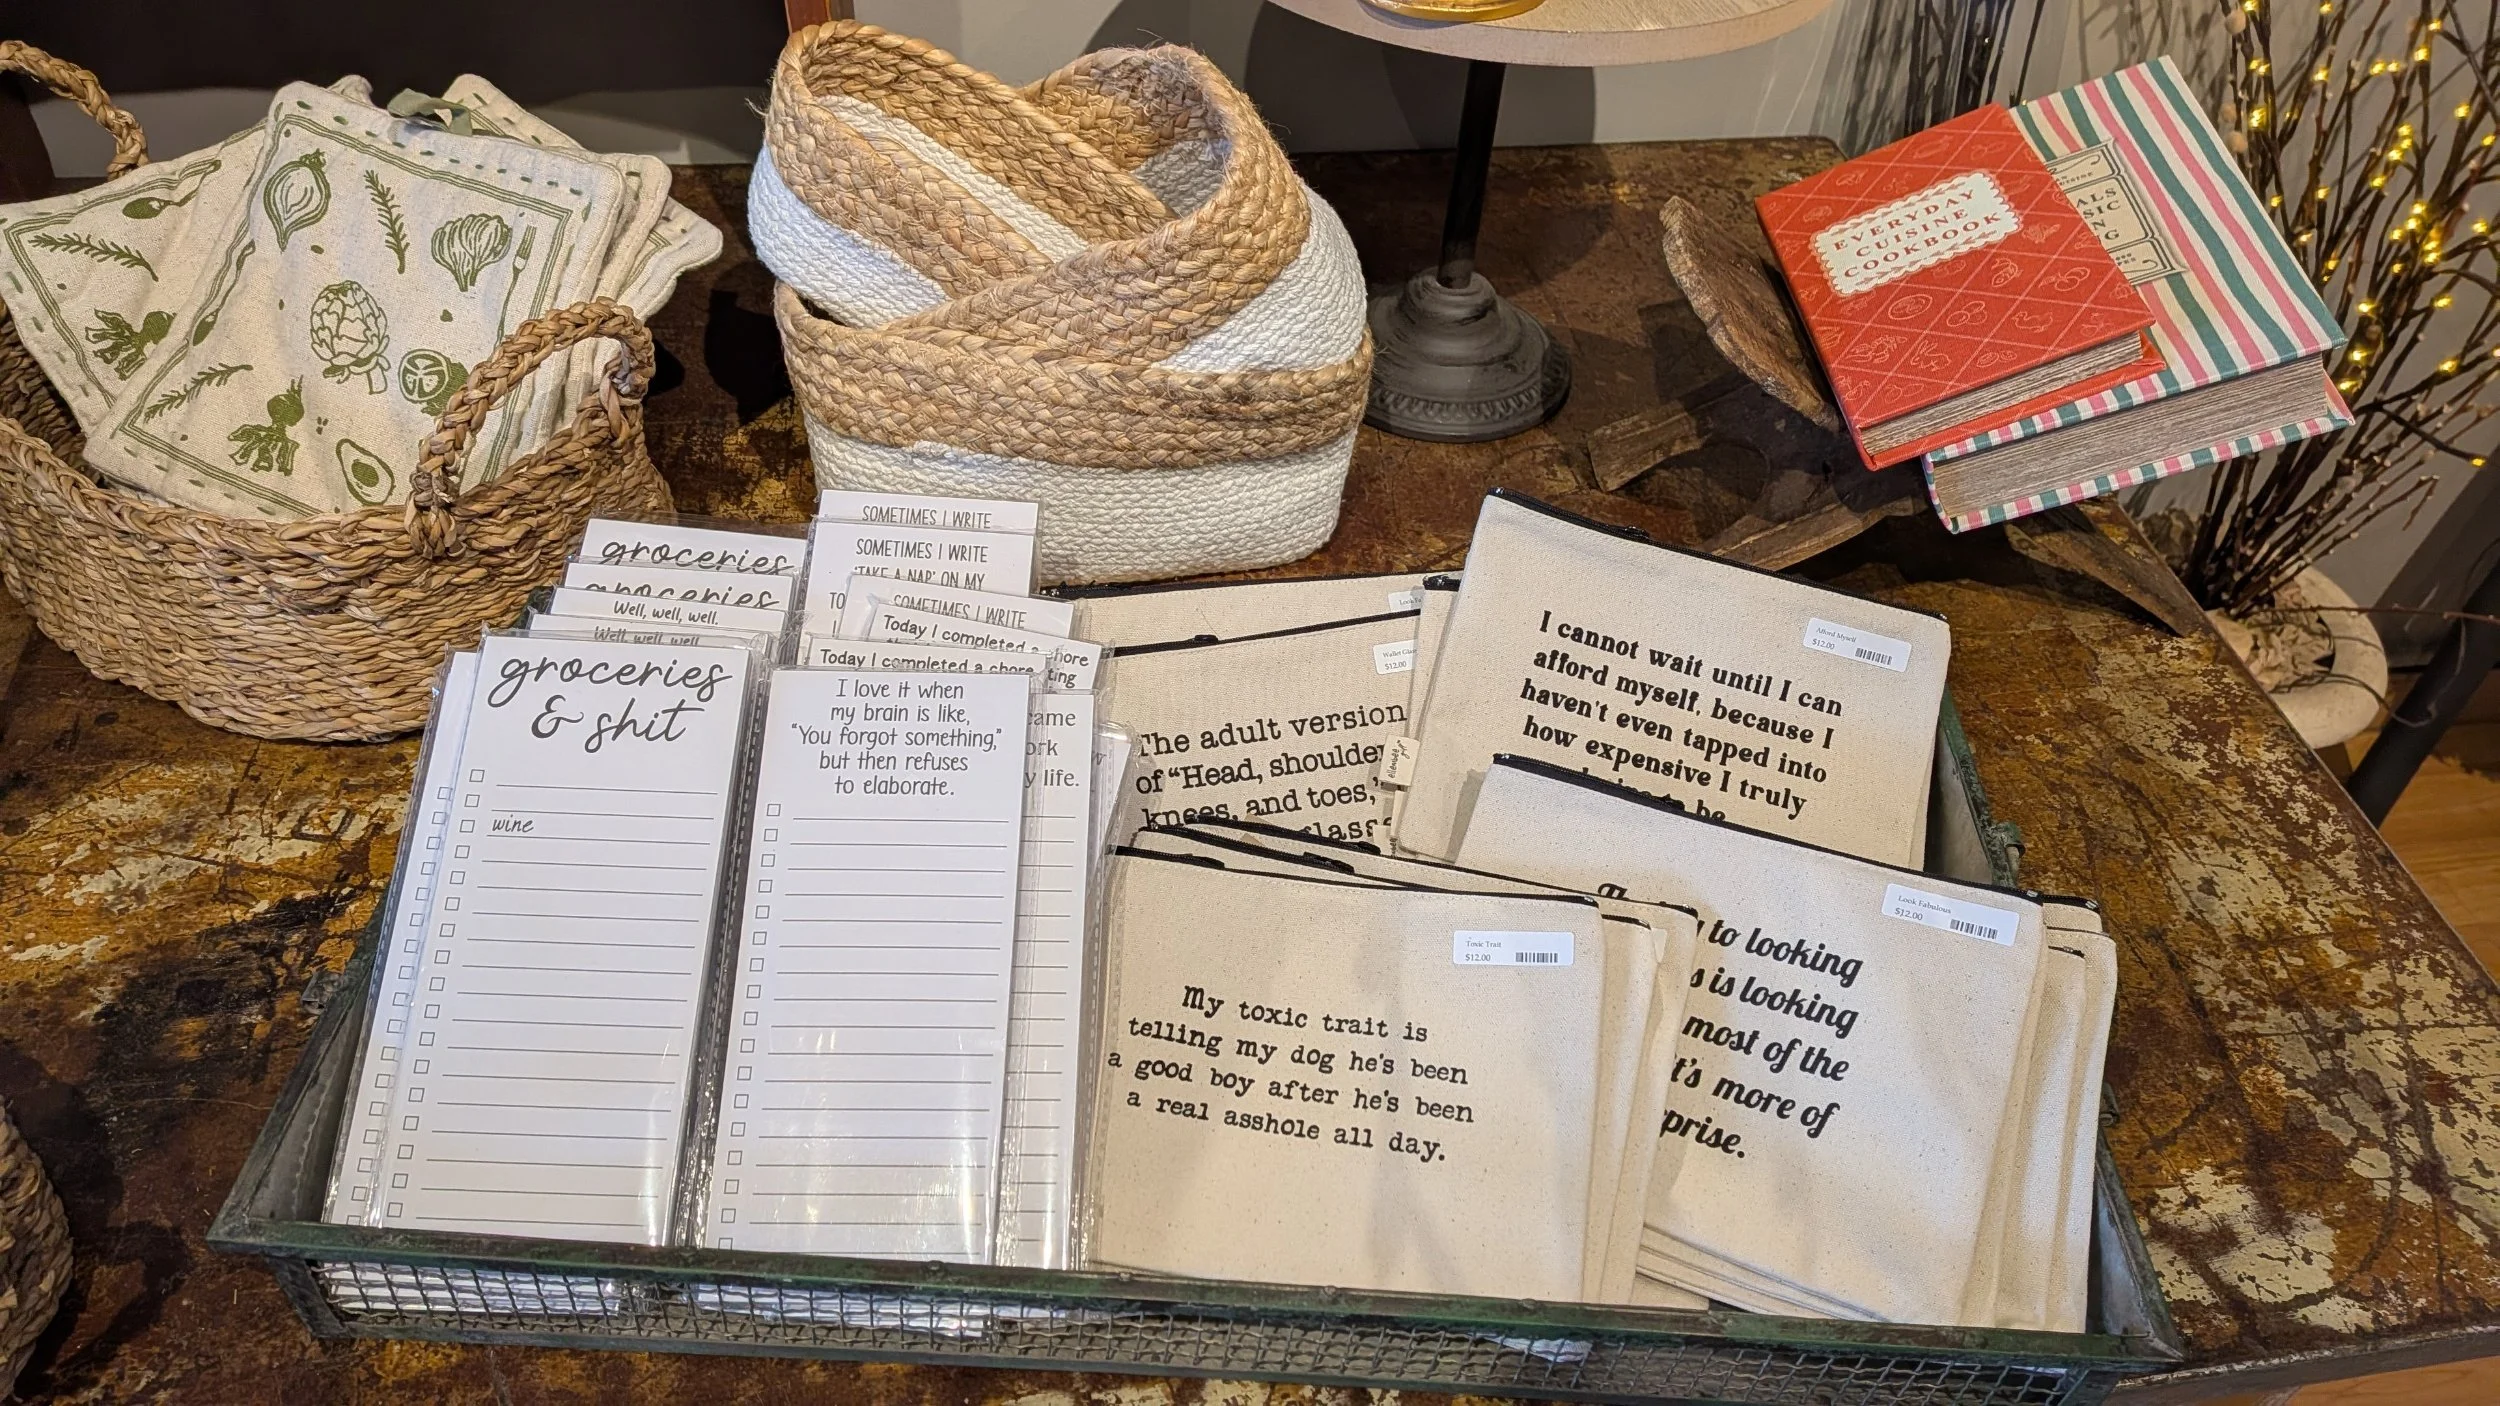 EVERYDAY
CUISINE
COOKBOOK
ALS
SIC
NG
SOMETIMES I WRITE
SOMETIMES I WRITE
'TAKE A NAP' ON MY
TO
SOMETIMES I WRITE
groceries
groceries
Well, well, well.
Well, well, well
Today I completed a chore
Today I completed a chore
ting
came
ork
y life.
groceries
& shit
wine
I love it when
my brain is like,
"You forgot something,"
but then refuses
to elaborate.
Look Fa
Wallet Glas
$12.00
The adult version
of "Head, shoulder
knees, and toes,"
glass
Afford Myself
$12.00
I cannot wait until I can
afford myself, because I
haven't even tapped into
how expensive I truly
be
Toxic Trait
$12.00
My toxic trait is
telling my dog he's been
a good boy after he's been
a real asshole all day.
Look Fabulous
$12.00
to looking
s is looking
most of the
t's more of
prise.